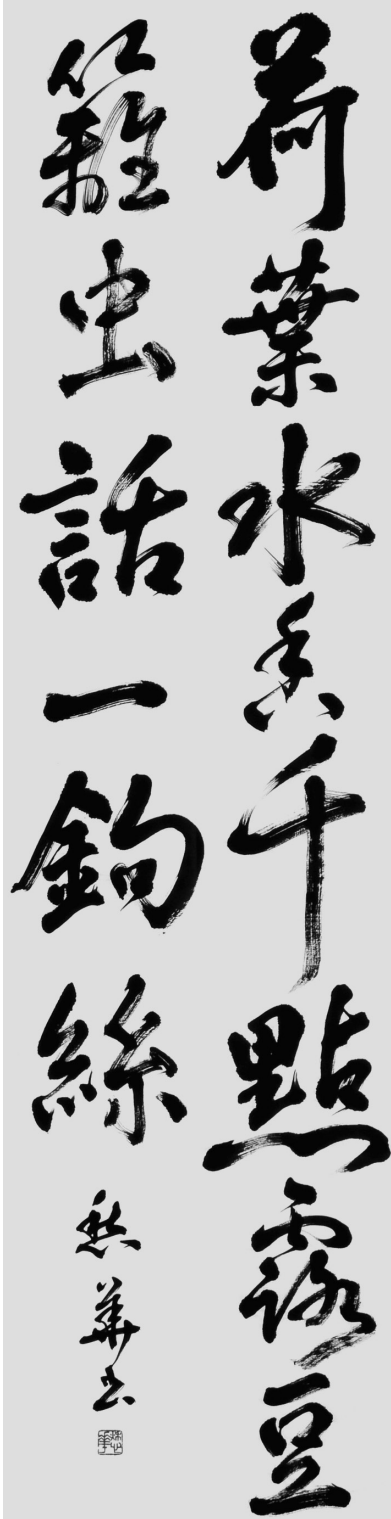 荷葉水香千點露豆
籬虫話一鉤絲
華書